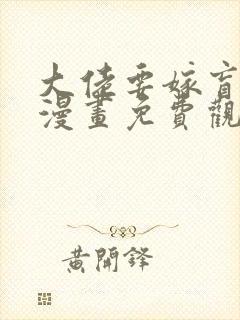 大佬要嫁盲
漫畫免費觀
黃開鋒